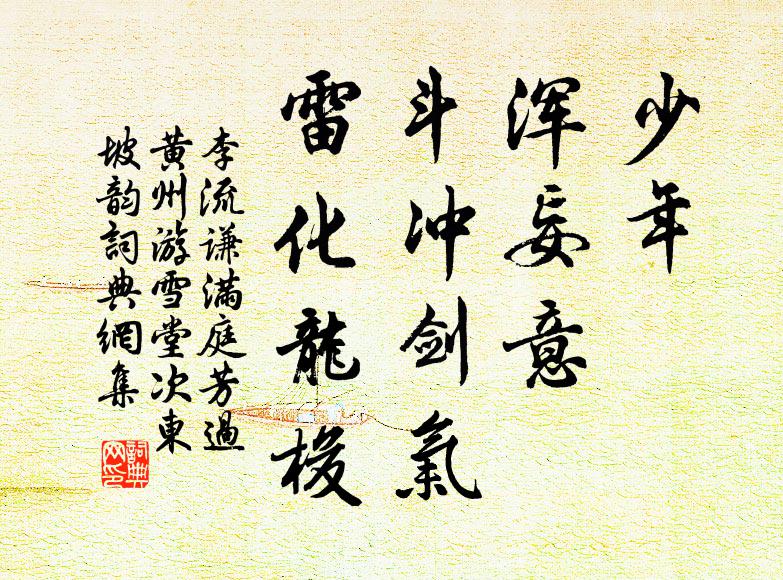 少年
浑妄意
斗冲剑氣
雷化龍梭
李流谦滿庭芳過
黄州游雪堂次東
坡韵詞典網集
詞典网印